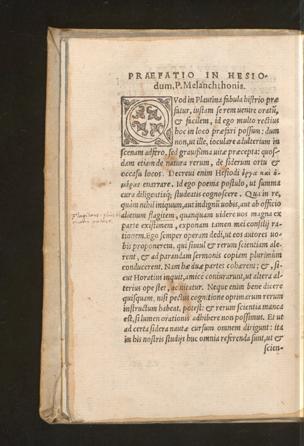 PRAEFATIO IN HESIO-
dum, P. Melanchthonis.
QVod in Plautina fabula histrio præ
fatur, iustam se rem uenire oratũ,
& facilem, id ego multo rectius
hoc in loco præfari possum: dum
non, ut ille, ioculare adulterium in
scenam adfero, sed grauissima uitæ præcepta: quæ-
dam etiam de natura rerum, de siderum ortu &
occasu locos. Decreui enim Hesiodi ἔργα καὶ ἡ-
μέρας enarrare. Id ego poema postulo, ut summa
cura diligentiaq́; studeatis cognoscere. Qua in re,
quàm nihil iniquum, aut indignũ uobis, aut ab officio
alienum flagitem, quanquam uidere uos magna ex
parte existimem, exponam tamen mei consilij ra-
tionem. Ego semper operam dedi, ut eos autores uo-
bis proponerem, qui simul & rerum scientiam ale-
rent, & ad parandam sermonis copiam plurimùm
conducerent. Nam hæ duæ partes cohærent; &, si-
cut Horatius inquit, amicè coniurarunt, ut altera al-
terius ope stet, ac nitatur. Neque enim bene dicere
quisquam, nisi pectus cognitione optimarum rerum
instructum habeat, potest: & rerum scientia manca
est, si lumen orationis adhibere non possimus. Et ut
ad certa sidera nautæ cursum omnem dirigunt: ita
in his nostris studijs huc omnia referenda sunt, ut &
scien-